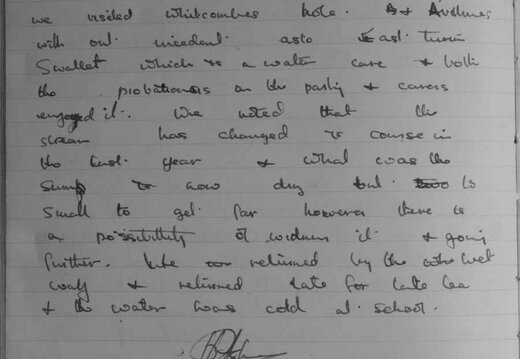 we visited Whitcombes hole. & Avelines
with out incedent. also East Twin
Swallet which is a water cave & both
the probationers on the party & cavers
enjoyed it. We noted that the
stream has changed its course in
the last year & what was the
sump is now dry but to
small to get far however there is
a possibility of widening it & going
further. We returned by the wet
way & returned late for late tea
& the water was cold at school.